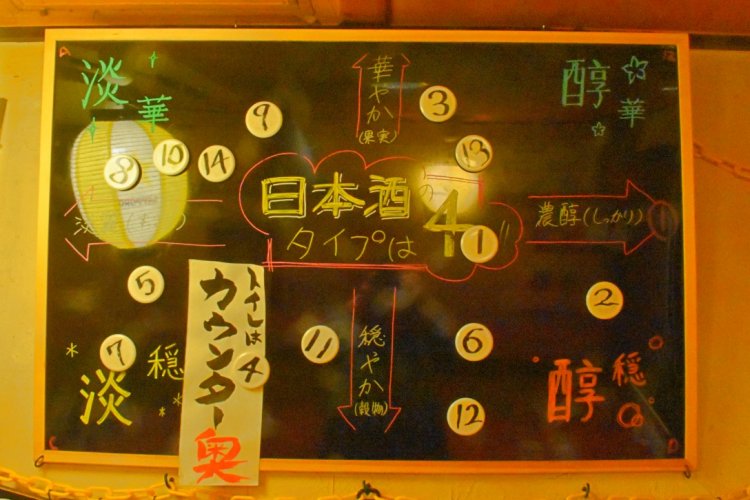 淡華
華やか
(果実)
醇華
9
3
8
10
14
13
日本酒の
タイプは4
1
濃醇(しっかり)
5
2
トイレは
カウンター奥
7
4
11
6
12
穏やか
(穀物)
淡穏
醇穏